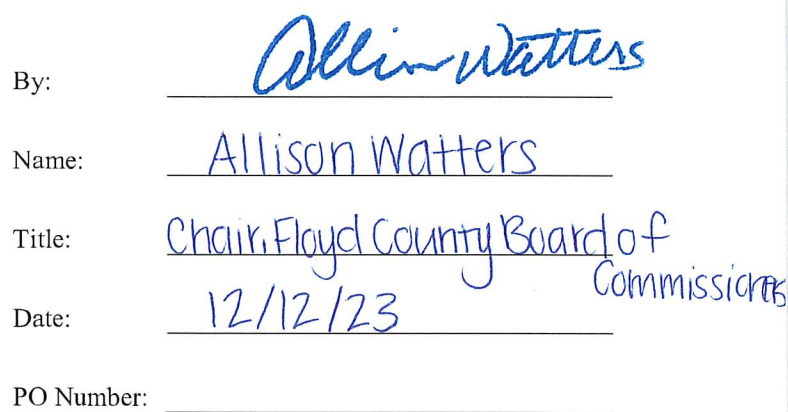 By: Allison Watters
Name: Allison Watters
Title: Chair, Floyd County Board of
Commissioners
Date: 12/12/23
PO Number: